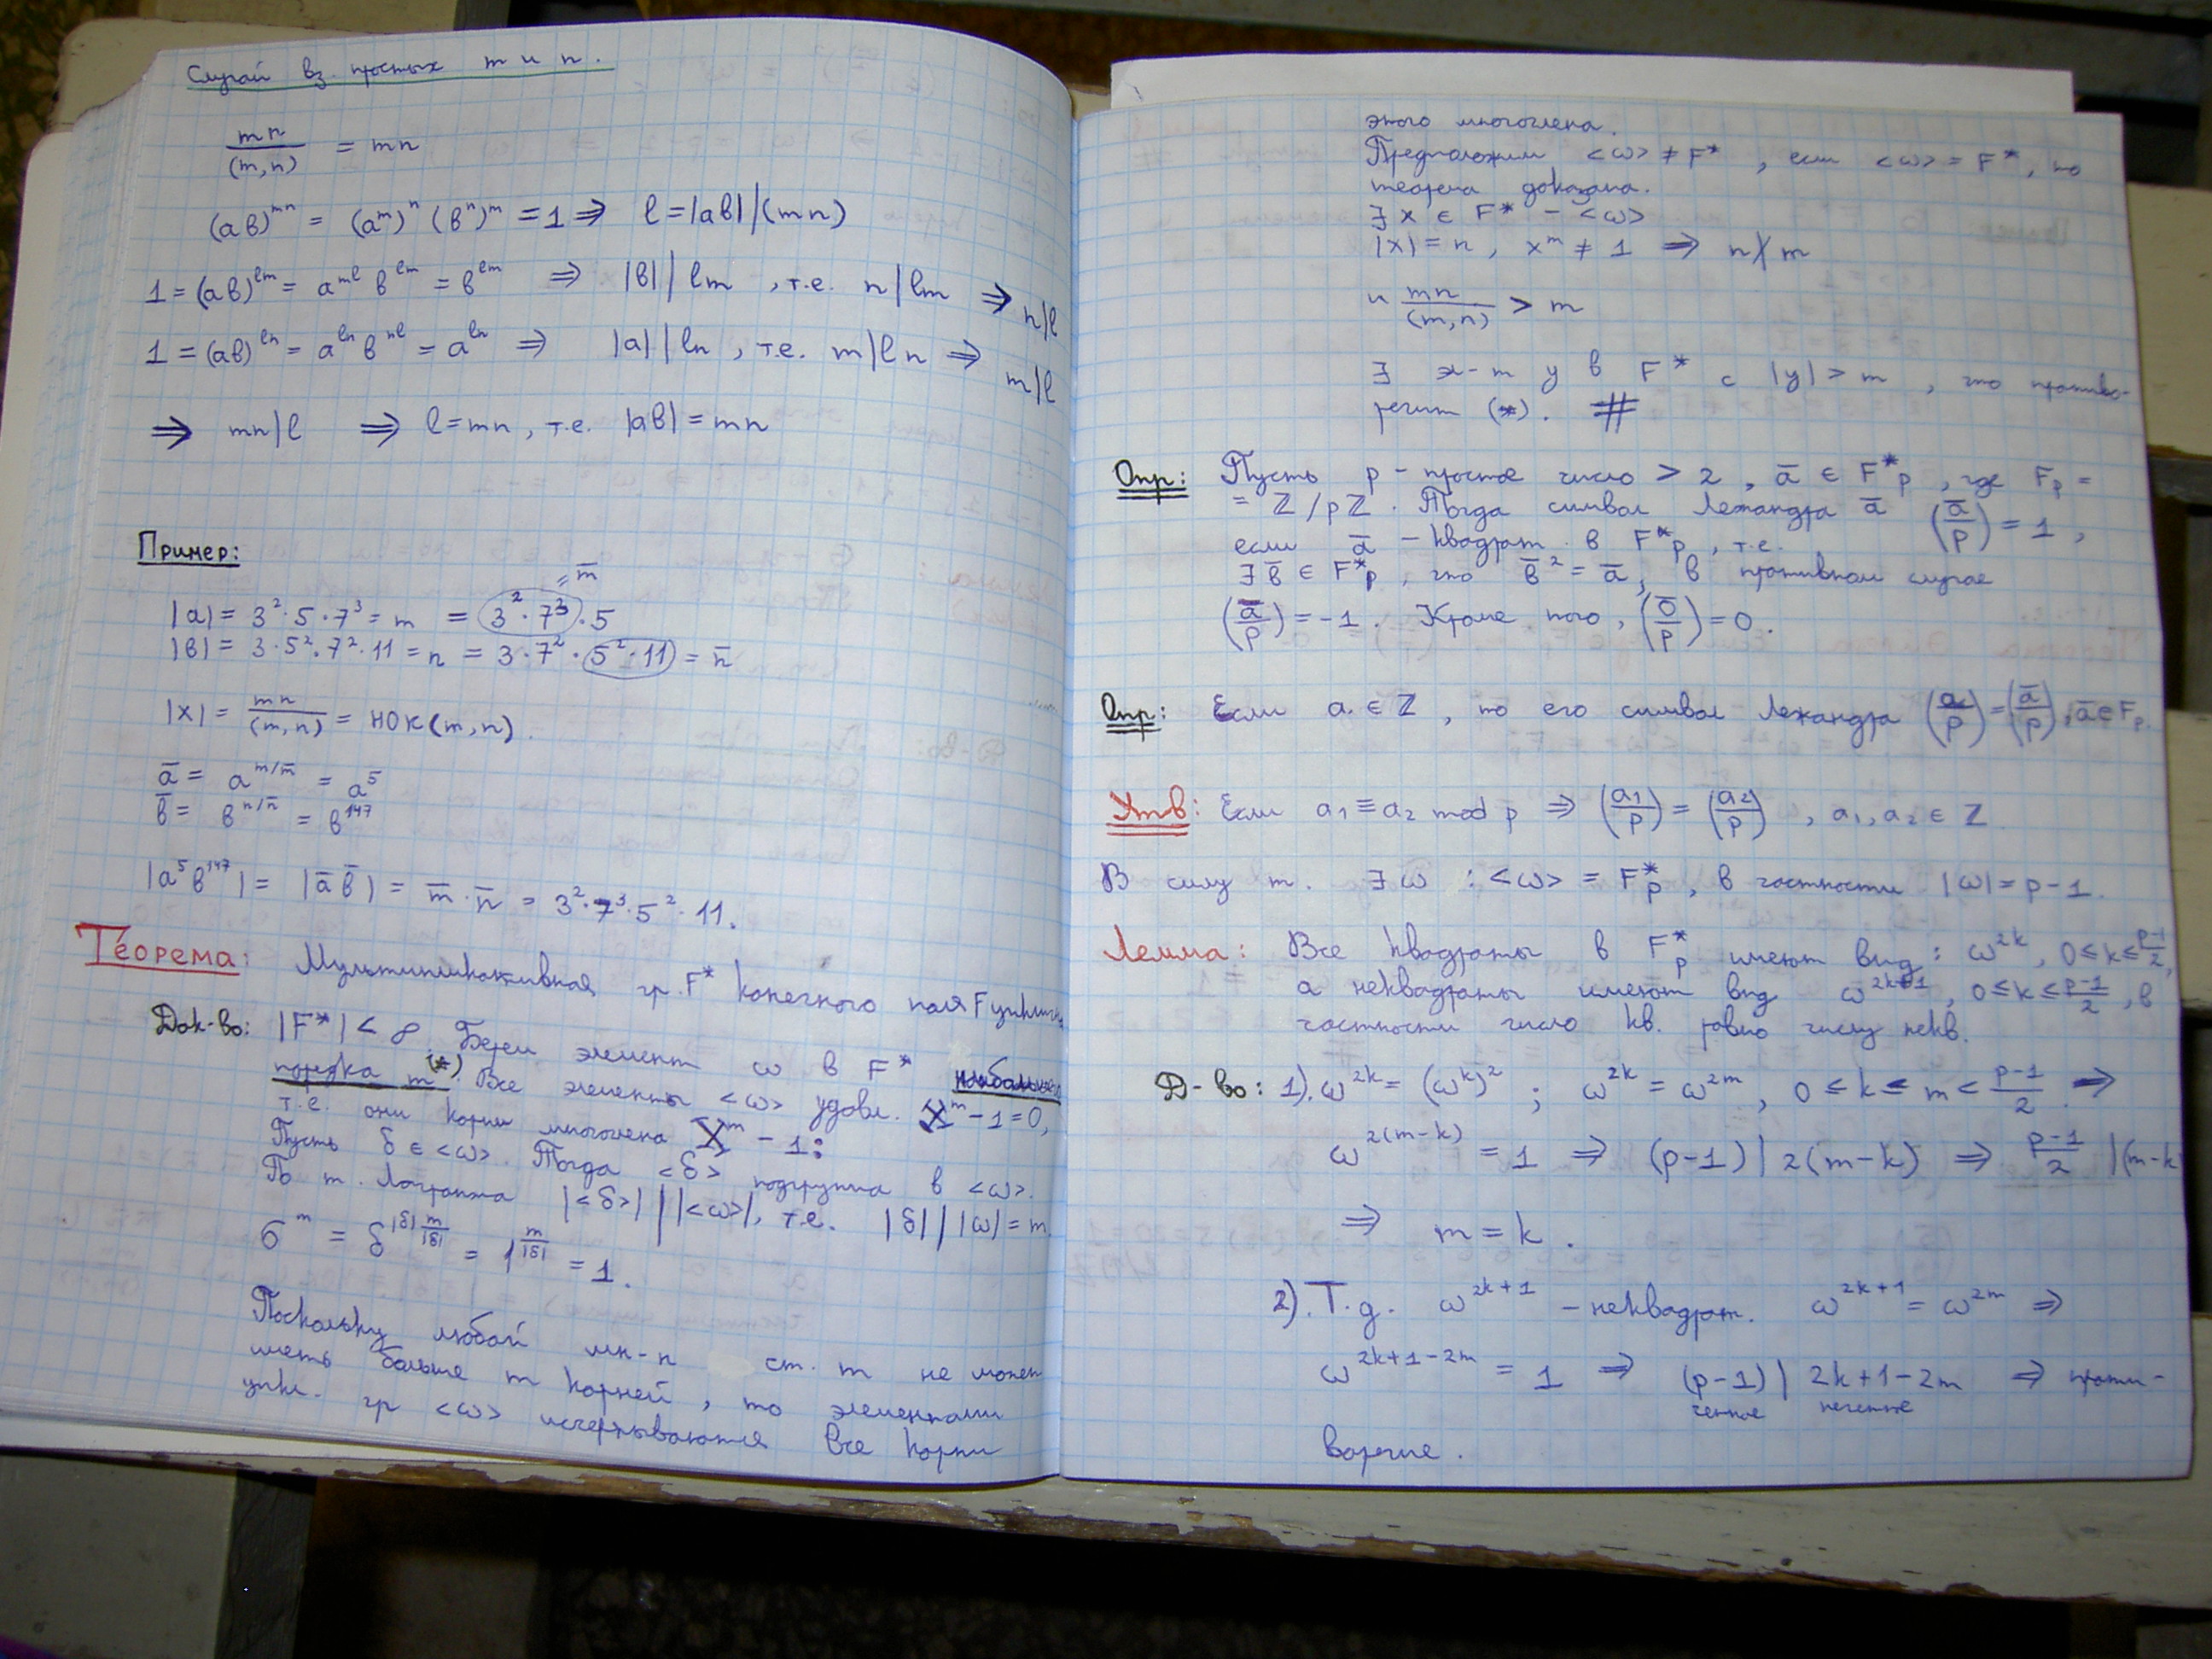 Случай вз. простых m и n.
mn/(m,n) = mn
(ab)^mn = (a^m)^n (b^n)^m = 1 ⇒ l = |ab| | (mn)
1 = (ab)^lm = a^ml b^lm = b^lm ⇒ |b| | lm , т.е. n | lm ⇒ n|l
1 = (ab)^ln = a^ln b^nl = a^ln ⇒ |a| | ln , т.е. m | ln ⇒ m|l
⇒ mn|l ⇒ l = mn , т.е. |ab| = mn
Пример:
= m̅
|a| = 3²·5·7³ = m = 3²·7³·5
|b| = 3·5²·7²·11 = n = 3·7²·5²·11 = n̅
|x| = mn/(m,n) = НОК(m,n).
a̅ = a^(m/m̅) = a⁵
b̅ = b^(n/n̅) = b¹⁴⁷
|a⁵b¹⁴⁷| = |a̅ b̅| = m̅·n̅ = 3²·7³·5²·11.
Теорема: Мультипликативная гр. F* конечного поля F циклична
Док-во: |F*| < ∞. Берем элемент ω в F* наибольшего
порядка m (*). Все элементы <ω> удовл. X^m - 1 = 0,
т.е. они корни многочлена X^m - 1:
Пусть δ ∈ <ω>. Тогда <δ> подгруппа в <ω>.
По т. Лагранжа |<δ>| | |<ω>|, т.е. |δ| | |ω| = m.
δ^m = δ^(|δ| m/|δ|) = 1^(m/|δ|) = 1.
Поскольку любой мн-н ст. m не может
иметь больше m корней, то элементами
цикл. гр <ω> исчерпываются все корни
этого многочлена.
Предположим <ω> ≠ F* , если <ω> = F*, то
теорема доказана.
∃ x ∈ F* - <ω>
|x| = n , x^m ≠ 1 ⇒ n∤m
и mn/(m,n) > m
∃ эл-т y в F* с |y| > m , что противо-
речит (*). #
Опр: Пусть p - простое число > 2 , a̅ ∈ F*p , где Fp =
= ℤ/pℤ. Тогда символ Лежандра a̅ (a̅/p) = 1 ,
если a̅ - квадрат в F*p , т.е.
∃ b̅ ∈ F*p , что b̅² = a̅, в противном случае
(a̅/p) = -1. Кроме того, (0̅/p) = 0.
Опр: Если a ∈ ℤ , то его символ Лежандра (a/p) = (a̅/p), a̅ ∈ Fp.
Утв: Если a₁ ≡ a₂ mod p ⇒ (a₁/p) = (a₂/p) , a₁, a₂ ∈ ℤ
В силу т. ∃ω : <ω> = F*p , в частности |ω| = p-1.
Лемма: Все квадраты в F*p имеют вид: ω^2k, 0 ≤ k ≤ (p-1)/2,
а неквадраты имеют вид ω^(2k+1), 0 ≤ k ≤ (p-1)/2 , в
частности число кв. равно числу некв.
Д-во: 1). ω^2k = (ω^k)² ; ω^2k = ω^2m , 0 ≤ k ≤ m < (p-1)/2 ⇒
ω^2(m-k) = 1 ⇒ (p-1) | 2(m-k) ⇒ (p-1)/2 | (m-k
⇒ m = k .
2). Т.д. ω^(2k+1) - неквадрат. ω^(2k+1) = ω^2m ⇒
ω^(2k+1-2m) = 1 ⇒ (p-1) | 2k+1-2m ⇒ проти-
четное нечетное
воречие .